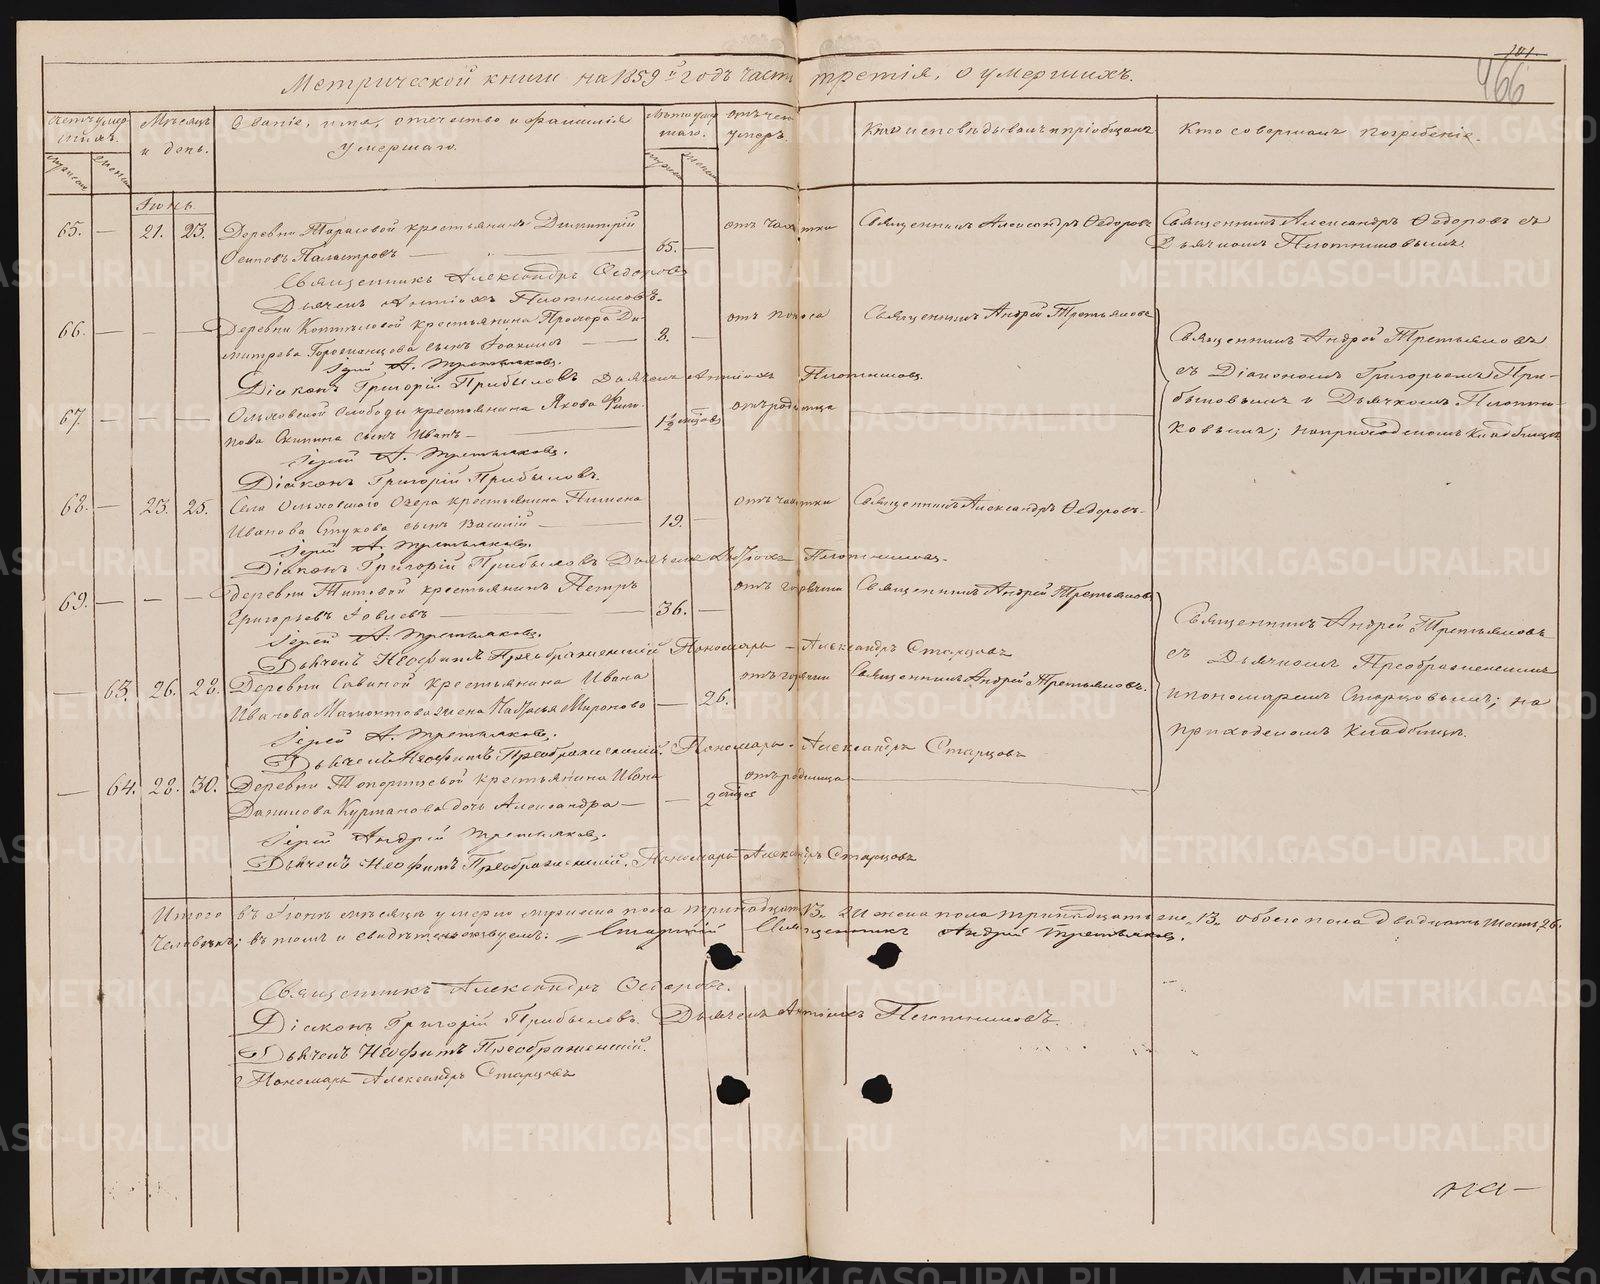 101.
466
Метрической книги на 1859й годъ часть третія, о умершихъ.
Счетъ умершихъ.
мужеска
женска
Мѣсяцъ и день.
Званіе, имя, отечество и фамилія умершаго.
Лѣта умершаго.
мужеска
женска
отъ чего умеръ.
Кто исповѣдывалъ и пріобщалъ
Кто совершалъ погребеніе.
Іюнь.
65. — 21. 23. Деревни Тарасовой крестьянинъ Димитрій
Осиповъ — 65. —
отъ чахотки
Священникъ Александръ Ѳедоровъ
Священникъ Александръ Ѳедоровъ съ
Дьячкомъ Плотниковымъ.
Священникъ Александръ Ѳедоровъ
Дьячекъ Антіохъ Плотниковъ.
66. — — — Деревни Коптѣловой крестьянина Прохора Ди-
митрева сынъ Іоакимъ — 8. —
отъ поноса
Священникъ Андрей Третьяковъ
Іерей А. Третьяковъ.
Діаконъ Григорій Прибыловъ Дьячекъ Антіохъ Плотниковъ.
Священникъ Андрей Третьяковъ
съ Діакономъ Григорьемъ При-
быловымъ и Дьячкомъ Плотни-
ковымъ; на приходскомъ кладбищѣ
67. — — — Ольховской слободы крестьянина Якова Фили-
пова сынъ Иванъ — 1½ мѣсяцовъ
отъ родимца
Іерей А. Третьяковъ.
Діаконъ Григорій Прибыловъ.
68. — 23. 25. Села Ольховскаго Озера крестьянина Пимена
Иванова сынъ Василій — 19. —
отъ чахотки
Священникъ Александръ Ѳедоровъ.
Іерей А. Третьяковъ.
Діаконъ Григорій Прибыловъ Дьячекъ Антіохъ Плотниковъ.
69. — — — Деревни Титовой крестьянинъ Петръ
Григорьевъ Іовлевъ — 36. —
отъ горячки
Священникъ Андрей Третьяковъ
Іерей А. Третьяковъ.
Дьячекъ Неофитъ Преображенскій Пономарь — Александръ Старцовъ
Священникъ Андрей Третьяковъ
съ Дьячкомъ Преображенскимъ
и пономаремъ Старцовымъ; на
приходскомъ кладбищѣ.
— 63. 26. 28. Деревни Савиной крестьянина Ивана
Иванова Мамонтова жена Наталья Миронова — 26.
отъ горячки
Священникъ Андрей Третьяковъ.
Іерей А. Третьяковъ.
Дьячекъ Неофитъ Преображенскій. Пономарь — Александръ Старцовъ
— 64. 28. 30. Деревни Топоритевой крестьянина Ивана
Данилова Курманова дочь Александра — — 2 мѣсяцовъ
отъ родимца
Іерей Андрей Третьяковъ.
Дьячекъ Неофитъ Преображенскій. Пономарь Александръ Старцовъ
Итого въ Іюнѣ мѣсяцѣ умерло мужеска пола тринадцать 13. и женска пола тринадцать же 13. обоего пола двадцать шесть, 26.
Человѣкъ; въ томъ и свидѣтельствуемъ: — Старшій Священникъ Андрей Третьяковъ.
Священникъ Александръ Ѳедоровъ.
Діаконъ Григорій Прибыловъ. Дьячекъ Антіохъ Плотниковъ.
Дьячекъ Неофитъ Преображенскій.
Пономарь Александръ Старцовъ
METRIKI.GASO-URAL.RU